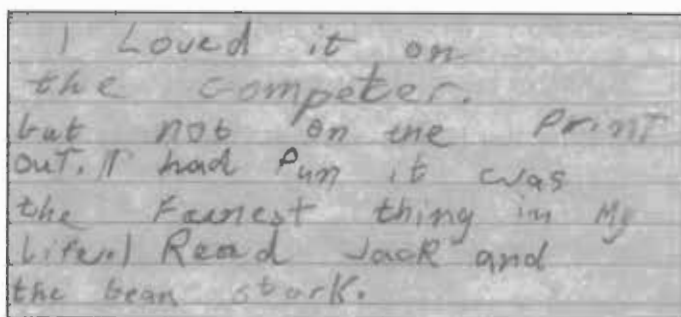 I Loved it on
the competer.
but not on the Print
out. I had Fun it was
the Faunest thing in My
Life. I Read Jack and
the bean stork.